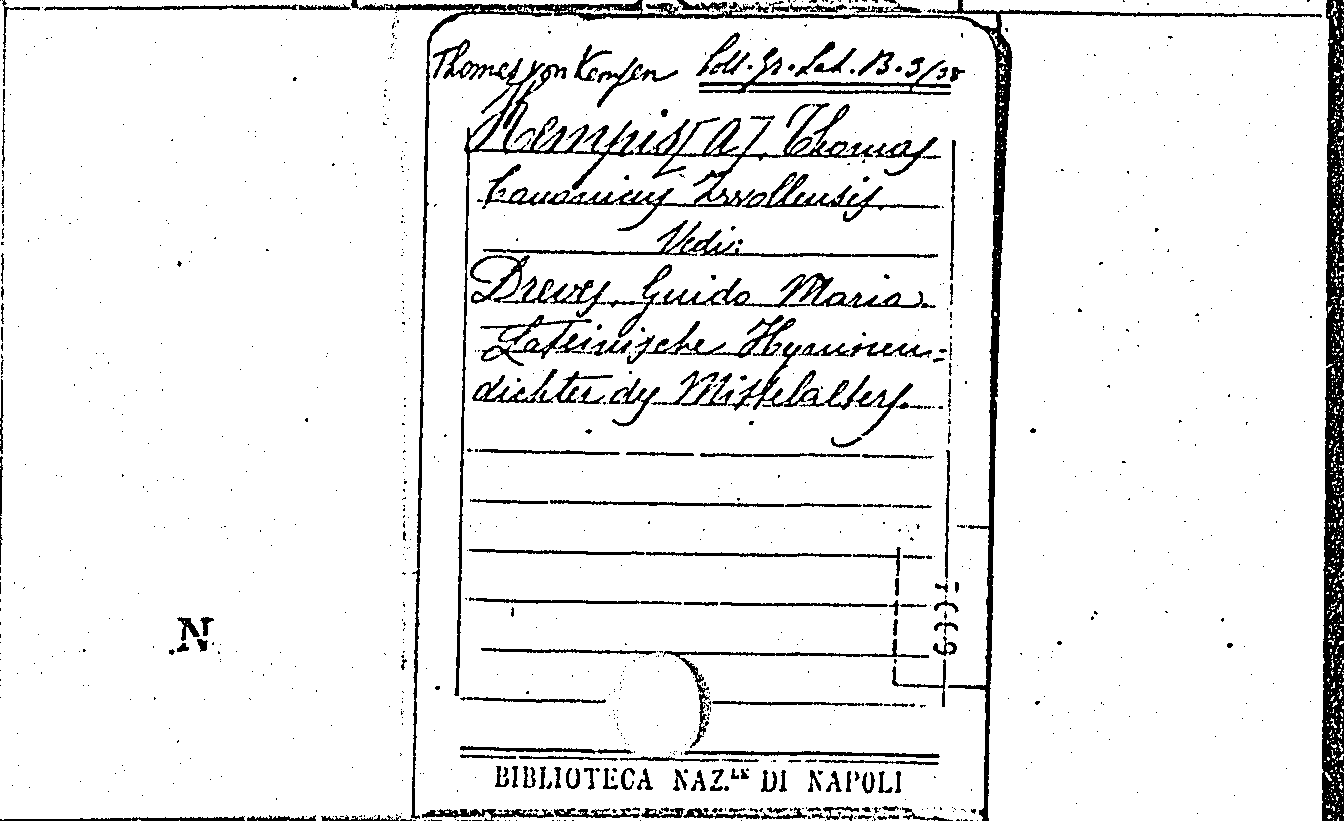 Thomas von Kempen Coll. Gr. Lat. B. 3/38
Kempis [a], Thomas
Canonicus Zwollensis.
Vedi:
Dreves, Guido Maria
Lateinische Hymnen=
dichter des Mittelalters.
N
BIBLIOTECA NAZ.LE DI NAPOLI